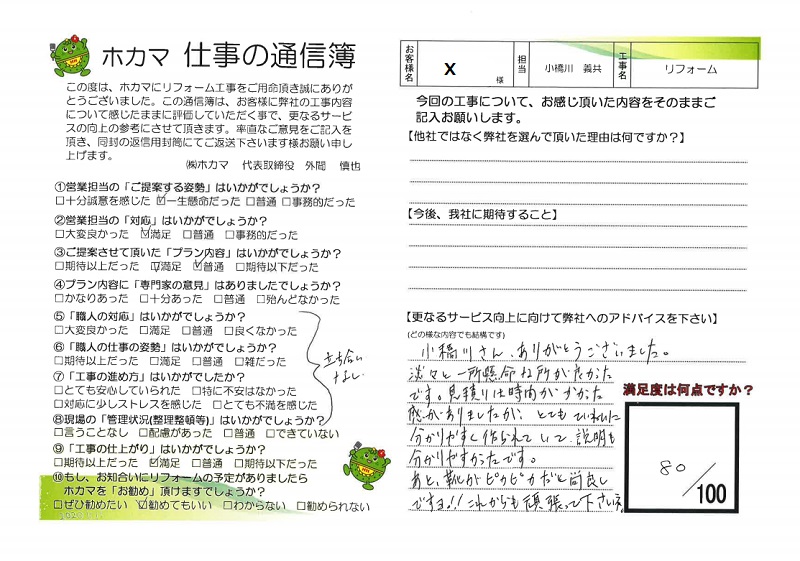 ホカマ 仕事の通信簿
この度は、ホカマにリフォーム工事をご用命頂き誠にありが
とうございました。この通信簿は、お客様に弊社の工事内容
について感じたままに評価していただく事で、更なるサービ
スの向上の参考にさせて頂きます。率直なご意見をご記入を
頂き、同封の返信用封筒にてご返送下さいます様お願い申し
上げます。
㈱ホカマ 代表取締役 外間 慎也
①営業担当の「ご提案する姿勢」はいかがでしょうか?
□十分誠意を感じた ☑一生懸命だった □普通 □事務的だった
②営業担当の「対応」はいかがでしょうか?
□大変良かった ☑満足 □普通 □事務的だった
③ご提案させて頂いた「プラン内容」はいかがでしょうか?
□期待以上だった ☑満足 ☑普通 □期待以下だった
④プラン内容に「専門家の意見」はありましたでしょうか?
□かなりあった □十分あった □普通 □殆んどなかった
⑤「職人の対応」はいかがでしょうか?
□大変良かった □満足 □普通 □良くなかった
⑥「職人の仕事の姿勢」はいかがでしょうか?
□期待以上だった □満足 □普通 □雑だった
⑦「工事の進め方」はいかがでしたでしょうか?
□とても安心していられた □特に不安はなかった
□対応に少しストレスを感じた □とても不満を感じた
⑧現場の「管理状況(整理整頓等)」はいかがでしょうか?
□言うことなし □配慮があった □普通 □できていない
⑨「工事の仕上がり」はいかがでしょうか?
□期待以上だった ☑満足 □普通 □期待以下だった
⑩もし、お知合いにリフォームの予定がありましたら
ホカマを「お勧め」頂けますでしょうか?
□ぜひ勧めたい ☑勧めてもいい □わからない □勧められない
立ち合い
なし
お客様名 X 様 担当 小橋川 義共 工事名 リフォーム
今回の工事について、お感じ頂いた内容をそのままご
記入お願いします。
【他社ではなく弊社を選んで頂いた理由は何ですか?】
【今後、我社に期待すること】
【更なるサービス向上に向けて弊社へのアドバイスを下さい】
(どの様な内容でも結構です)
小橋川さん、ありがとうございました。
淡々と一所懸命な所が良かった
です。見積りは時間がかかった
感がありましたが、とてもていねいに
分かりやすく作られていて、説明も
分かりやすかったです。
あと、靴がピカピカだと尚良し
ですヨ!!これからも頑張って下さい
満足度は何点ですか?
80/100